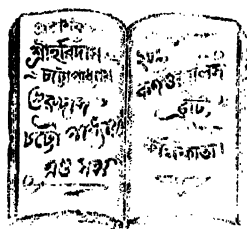 প্রকাশক
শ্রীহরিদাস
চট্টোপাধ্যায়
গুরুদাস
চট্টোপাধ্যায়
এণ্ড সন্স
কর্ণওয়ালিস
ষ্ট্রীট,
কলিকাতা।